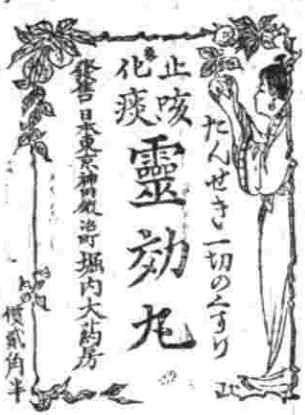 たんせき一切のくすり
止咳
化痰
靈効丸
發售 日本東京神田鍛冶町 堀内大药房
價貳角半